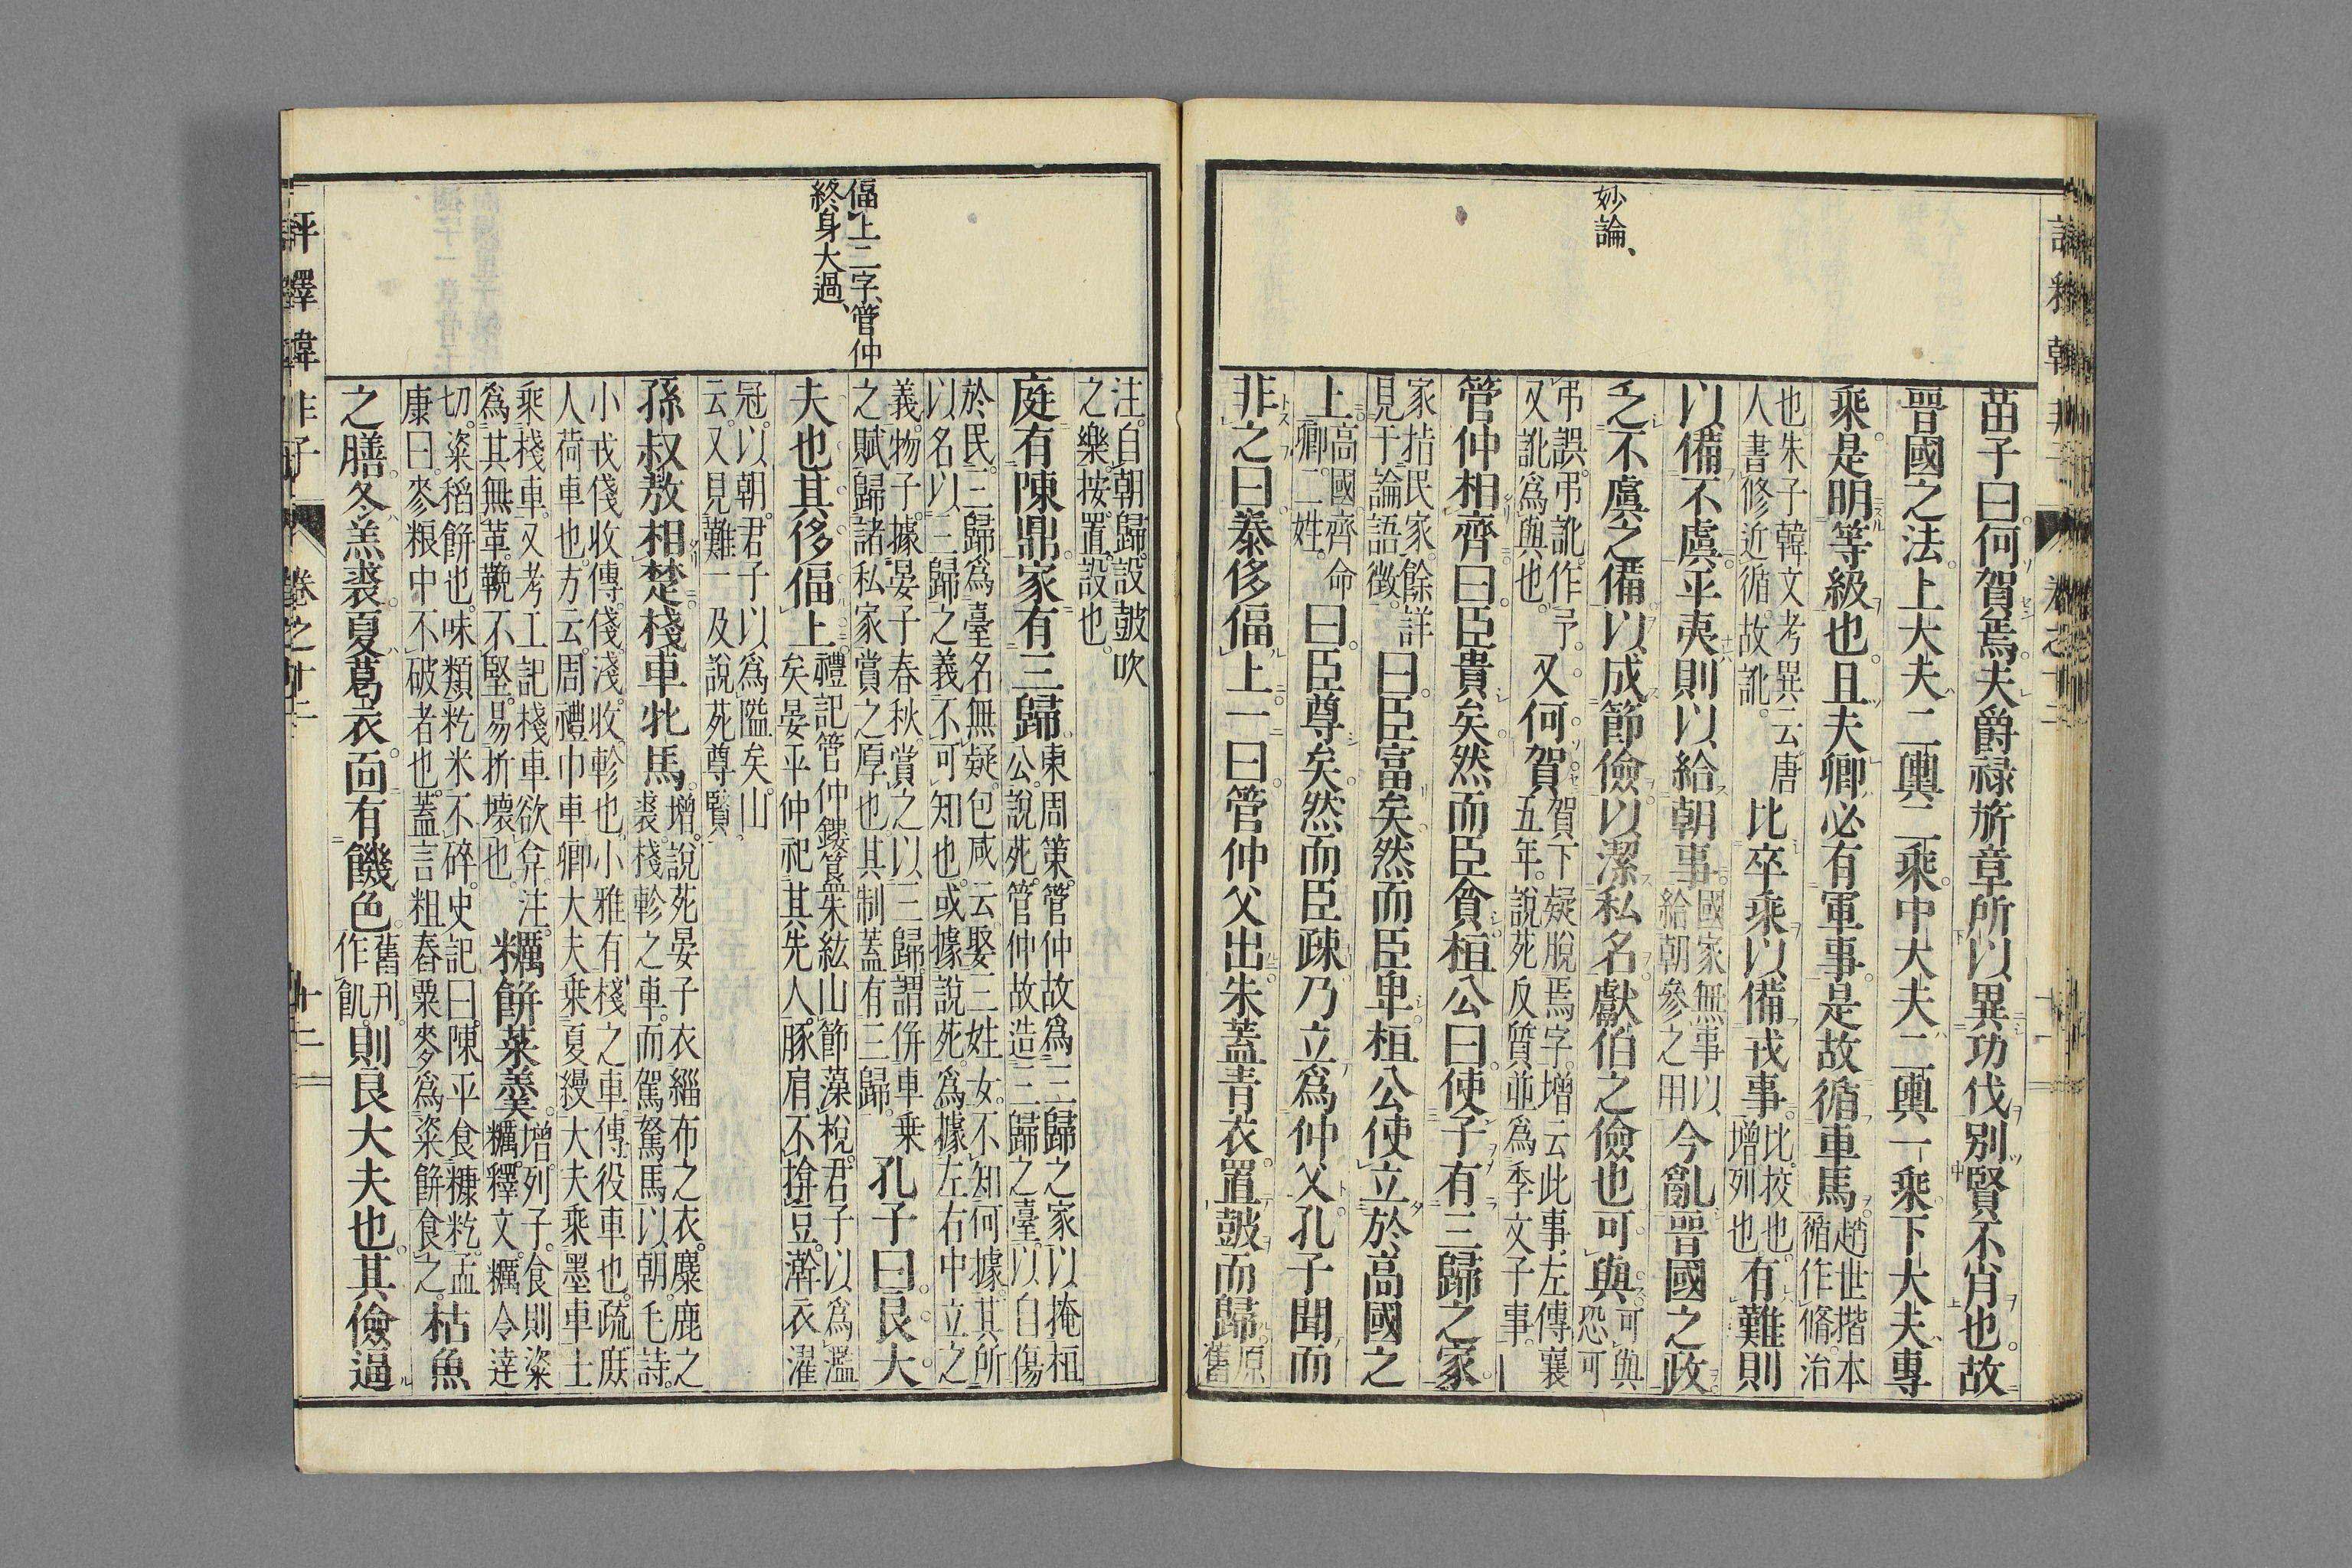 妙論、
苗子曰。何賀焉。夫爵禄旂章所以異功伐別賢不肖也。故
晉國之法。上大夫二輿二乘。中大夫二輿一乘。下大夫專
乘。是明等級也。且夫卿必有軍事。是故循車馬。
趙世揩本
循作脩。治
也。朱子韓文考異云。唐
人書修近循。故訛。
比卒乘以備戎事。
比。挍也。
增列也。
有難則
以備不虞。平夷則以給朝事。
國家無事以
給朝參之用
今亂晉國之政。
乏不虞之備。以成節儉。以潔私名。獻伯之儉也可與。
可與
恐可
弔誤。弔訛作予。
又訛爲與也。
又何賀。
賀下疑脫焉字。增云此事左傳襄
五年。說苑反質並爲季文子事。
管仲相齊。曰。臣貴矣。然而臣貧。桓公曰。使子有三歸之家。
家指民家。餘詳
見于論語徵。
曰。臣富矣。然而臣卑。桓公使立於高國之
上。
高國齊命
卿二姓。
曰。臣尊矣。然而臣疎。乃立爲仲父。孔子聞而
非之曰。泰侈偪上。一曰。管仲父出。朱蓋青衣。置鼓而歸。
原
舊
偪上二字、管仲
終身大過、
注。自朝歸。設鼓吹
之樂。按。置。設也。
庭有陳鼎。家有三歸。
東周策。管仲故爲三歸之家以掩桓
公。說苑。管仲故造三歸之臺。以自傷
於民。三歸爲臺名無疑。包咸云。娶三姓女。不知何據。其所
以名以三歸之義。不可知也。或據說苑。爲據左右中立之
義。物子。據晏子春秋。賞之以三歸。謂倂車乘
之賦。歸諸私家。賞之厚也。其制蓋有三歸。
孔子曰。良大
夫也。其侈偪上。
禮記管仲鏤簋朱紘山節藻梲。君子以爲濫
矣。晏平仲祀其先人。豚肩不揜豆。澣衣濯
冠。以朝。君子以爲隘矣。山
云。又見難一及說苑尊賢。
孫叔敖相楚。棧車牝馬。
增。說苑晏子衣緇布之衣。麋鹿之
裘。棧軫之車。而駕駑馬以朝。毛詩。
小戎俴收。傳。俴淺。收軫也。小雅有棧之車。傳。役車也。疏。庶
人荷車也。方云。周禮巾車卿大夫乘夏縵大夫乘墨車士
乘棧車。又考工記棧車欲弇。注。
爲其無革鞔。不堅。易折壞也。
糲餅菜羹。
增。列子食則粢
糲。釋文。糲令達
切。粢稻餅也。味類籺米不碎。史記曰。陳平食糠籺。孟
康曰。麥粮中不破者也。蓋言粗舂粟麥爲粢餅食之。
枯魚
之膳。冬羔裘。夏葛衣。面有饑色。
舊刊。
作飢。
則良大夫也。其儉逼
評釋韓非子
卷之十二
十二